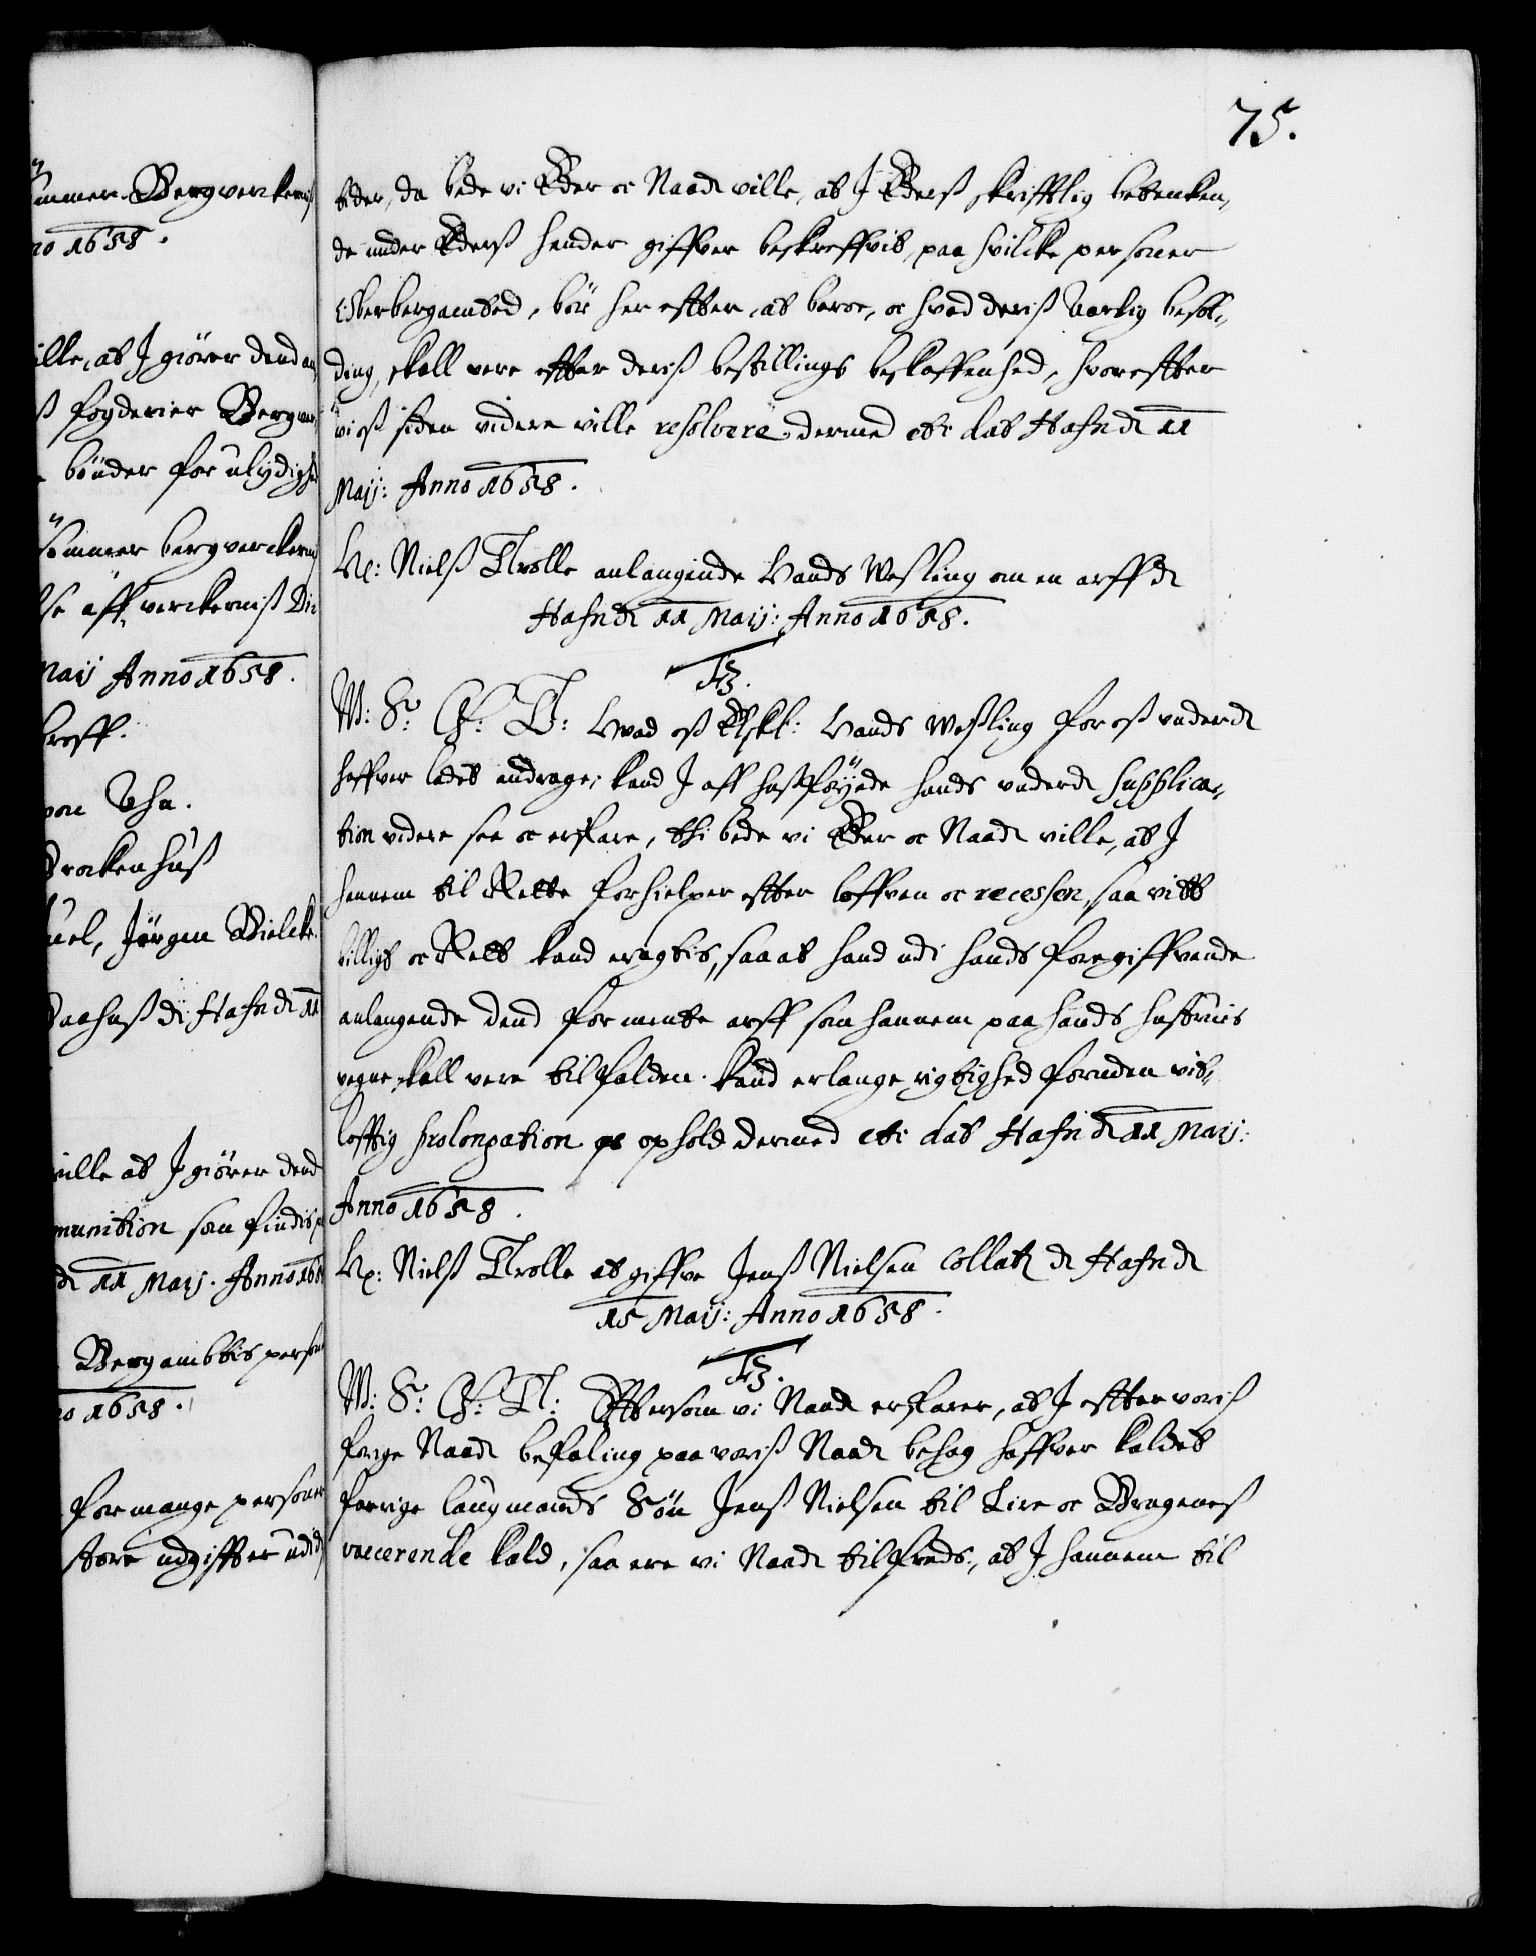 75.
ømmer Bergverckernis
no 1658.
ille, at I giører dend an
ß fogderier Bergver
bönder for ulydigh
ömmer bergverckern
se aff verckerniß Di
Maij Anno 1658.
broff.
pen Uhn.
Brockenhuß
uel, Jörgen Bielcke
Baahuß dz Hafn dz 11
ville at I giører dend
munition som findis p
dz 11 Maij. Anno 165
Bergambtis person
no 1658.
for mange personer
store udgiffter udi d
eder, da bede vi Eder oc Naadz ville, at I Ederß skrifftlig betenken,
de under Ederß hender giffver beskreffvit, paa hvilcke personer
Oberbergamted, bör her effter at beroe, oc hvad deriß Aarlig besol-
ding, skall vere effter deriß bestillings beskaffenhed, hvoreffter
vi oß siden videre ville resolvere dermed etc dat Hafn dz 11
Maij: Anno 1658.
H: Nielß Trolle anlangende Hands Weßling om en arff dz
Hafn dz 11 Maij: Anno 1658.
F3.
W: S: G: T: Hvad oß Elskl: Hands Weßling for oß underdz
haffver ladet andrage, kand I aff hoßföyede hands underdz supplica-
tion videre see oc erfare, thi bede vi Eder oc Naadz ville, at I
hannem til Rette forhielper effter loffven oc recessen, saa vitt
billigt oc Rett kand eragtis, saa at hand udi hands foregiffvende
anlangende dend formente arff som hannem paa hands hustruis
vegne skall vere tilfalden. kand erlange rigtighed foruden vit-
lofftig prolongation oc ophold dermed etc dat Hafn dz 11 Maij:
Anno 1658.
H: Nielß Trolle at giffve Jenß Nielsen Collatz dz Hafn dz
15 Maij: Anno 1658.
F3.
W: S: G: T: Eftersom vi Naadz erfarer, at I effter voriß
forige Naadz befaling paa voriß Naadz behag haffver kaldet
forrige laugmands Sön Jenß Nielsen til Lire oc Brageneß
vacerende kald, saa ere vi Naadz tilfreds, at I hannem til